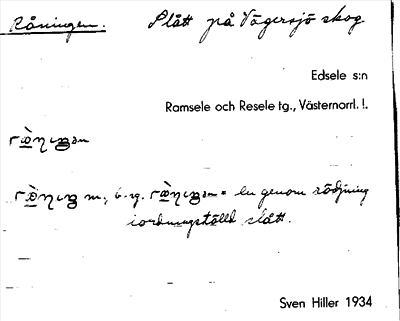 Råningen. Slått på Vågersjö skog
Edsele s:n
Ramsele och Resele tg., Västernorrl. l.
m., b. sg. = en genom rödjning
iordningställd slått.
Sven Hiller 1934